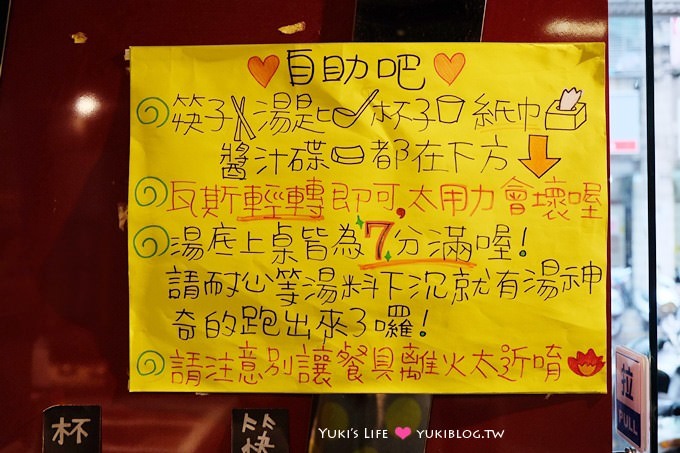 自助吧
筷子湯匙杯子紙巾
醬汁碟都在下方
瓦斯輕轉即可,太用力會壞喔
湯底上桌皆為7分滿喔!
請耐心等湯料下沉就有湯神
奇的跑出來了囉!
請注意別讓餐具離火太近唷
杯
筷
拉
PULL
YUKI'S LIFE ❤ YUKIBLOG.TW